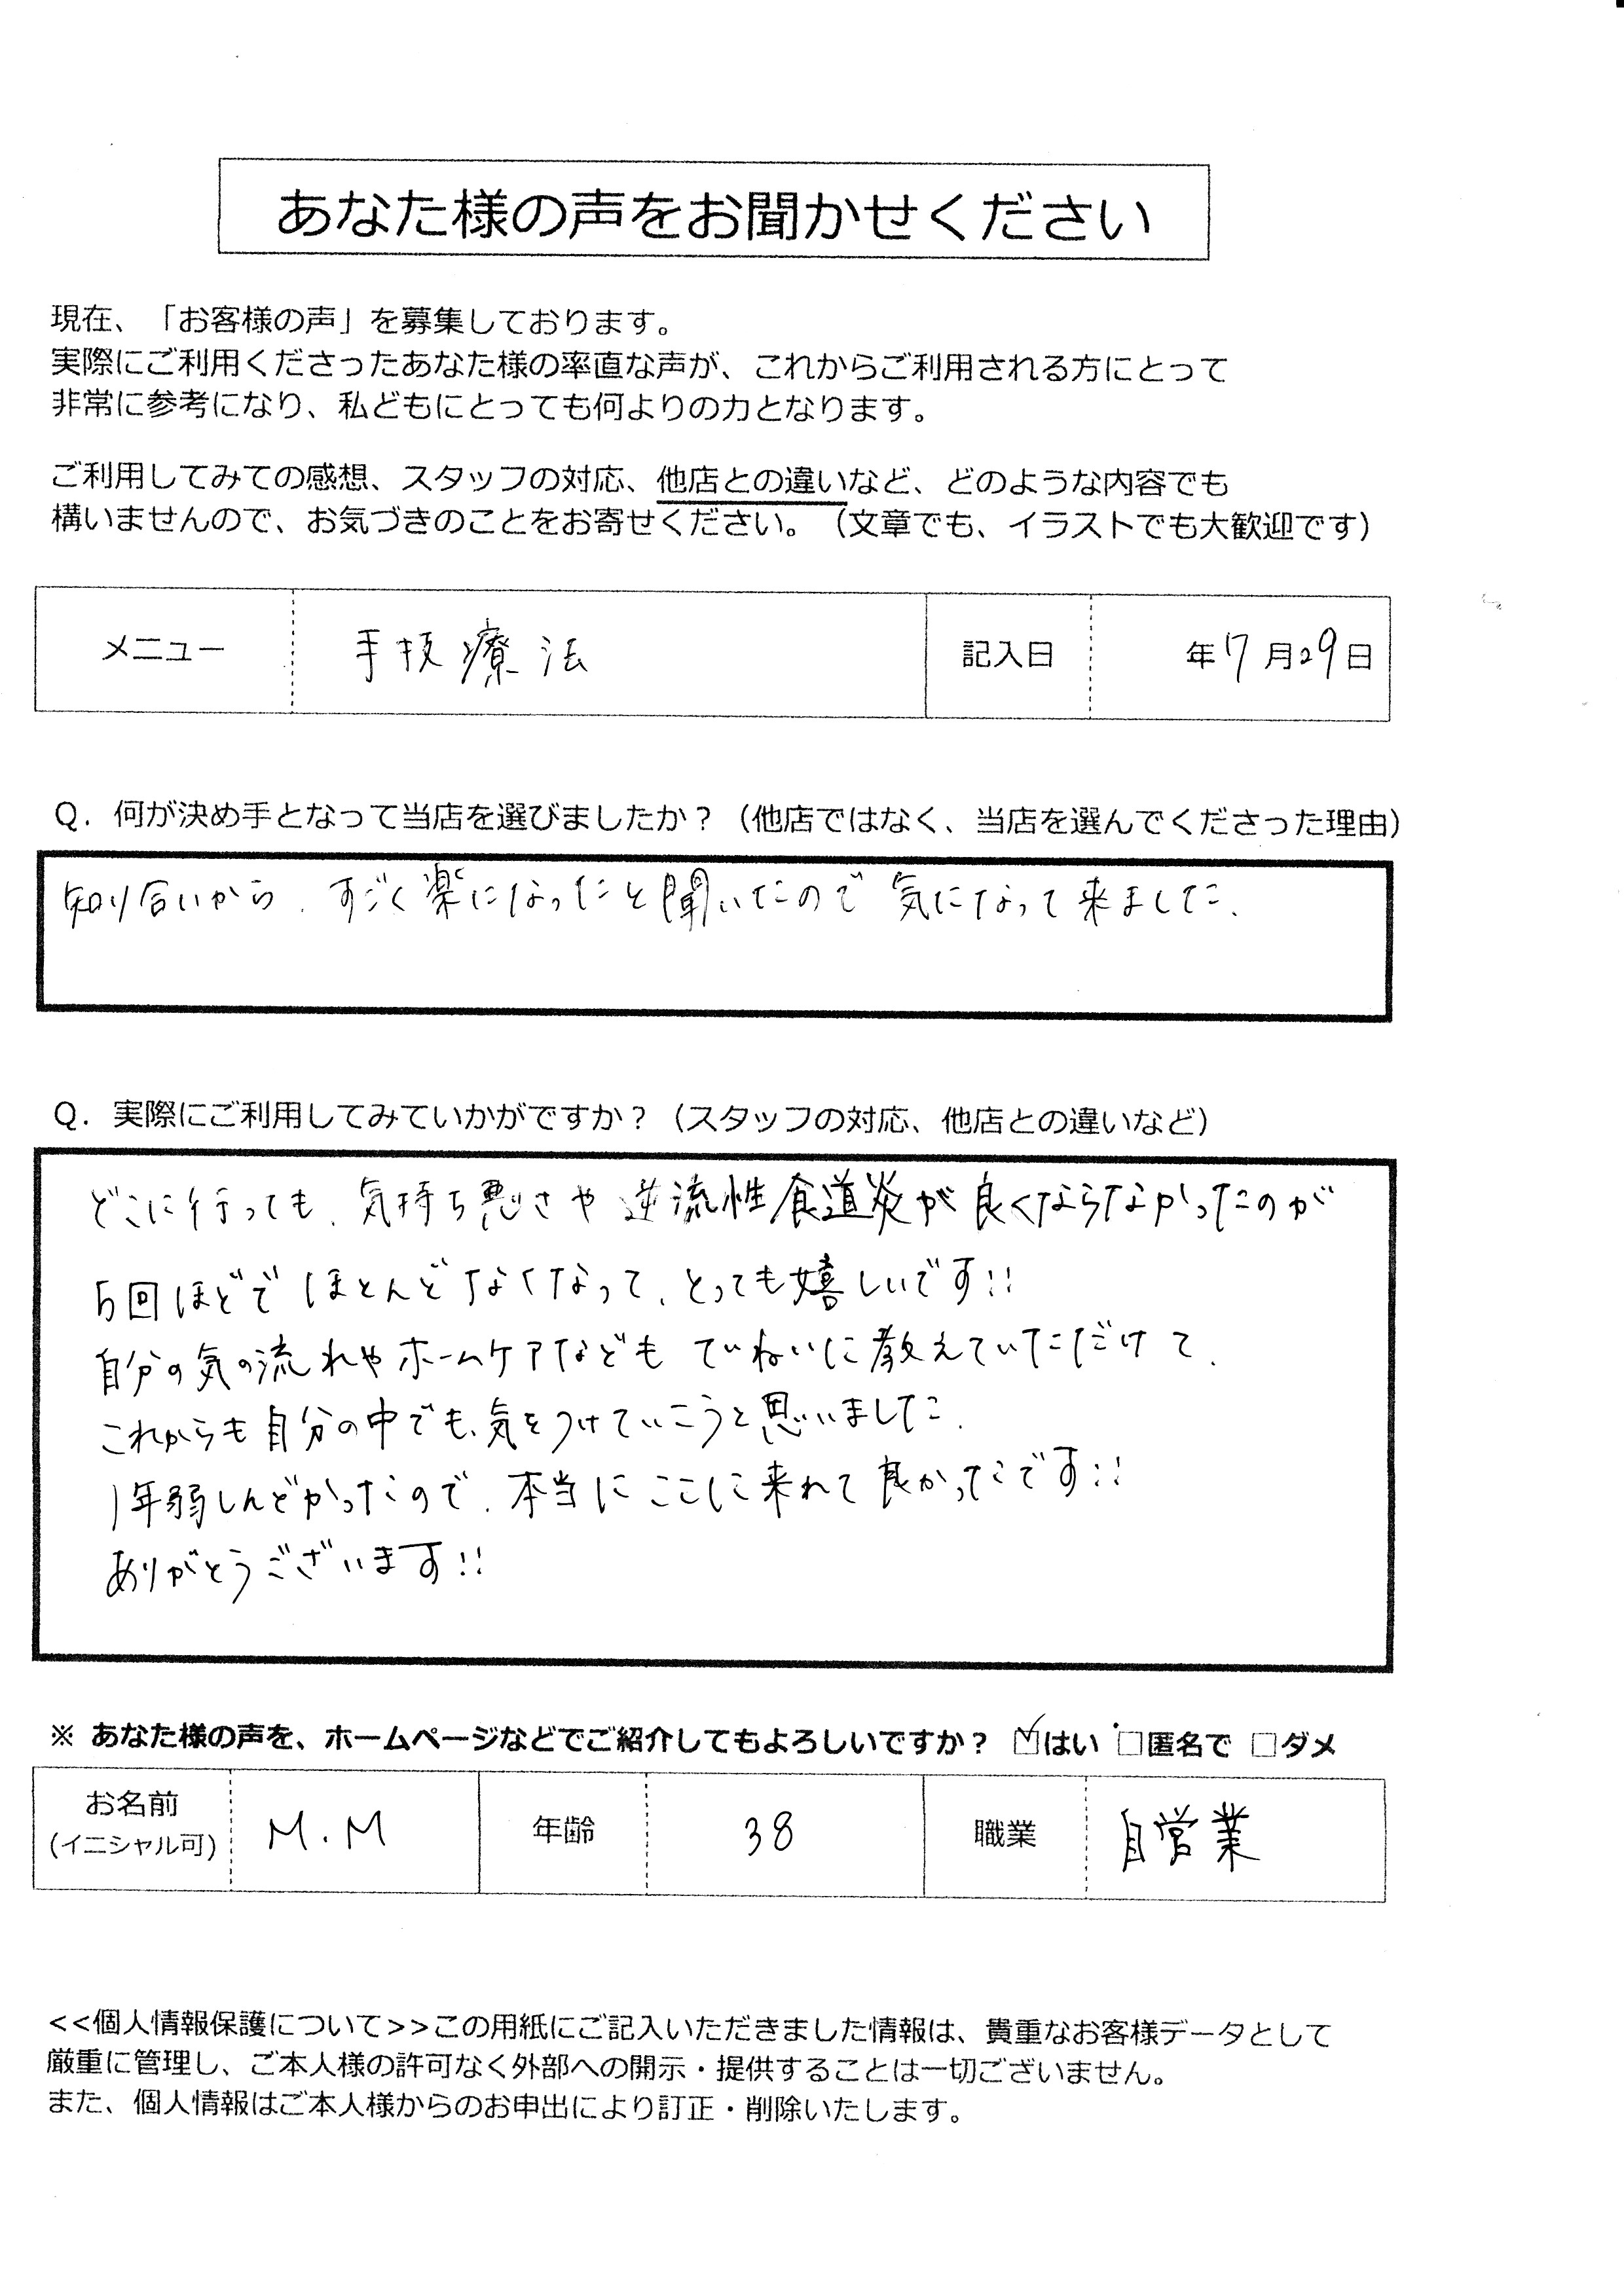 あなた様の声をお聞かせください
現在、「お客様の声」を募集しております。
実際にご利用くださったあなた様の率直な声が、これからご利用される方にとって
非常に参考になり、私どもにとっても何よりの力となります。
ご利用してみての感想、スタッフの対応、他店との違いなど、どのような内容でも
構いませんので、お気づきのことをお寄せください。（文章でも、イラストでも大歓迎です）
メニュー 手技療法 記入日 年7月29日
Q. 何が決め手となって当店を選びましたか？（他店ではなく、当店を選んでくださった理由）
知り合いから、すごく楽になったと聞いたので気になって来ました、
Q. 実際にご利用してみていかがですか？（スタッフの対応、他店との違いなど）
どこに行っても、気持ち悪さや逆流性食道炎が良くならなかったのが
5回ほどでほとんどなくなって、とっても嬉しいです!!
自分の気の流れやホームケアなどもていねいに教えていただけて、
これからも自分の中でも、気をつけていこうと思いました、
1年弱しんどかったので、本当にここに来れて良かったです!!
ありがとうございます!!
※ あなた様の声を、ホームページなどでご紹介してもよろしいですか？ ☑はい □匿名で □ダメ
お名前 M.M 年齢 38 職業 自営業
(イニシャル可)
<<個人情報保護について>>この用紙にご記入いただきました情報は、貴重なお客様データとして
厳重に管理し、ご本人様の許可なく外部への開示・提供することは一切ございません。
また、個人情報はご本人様からのお申出により訂正・削除いたします。